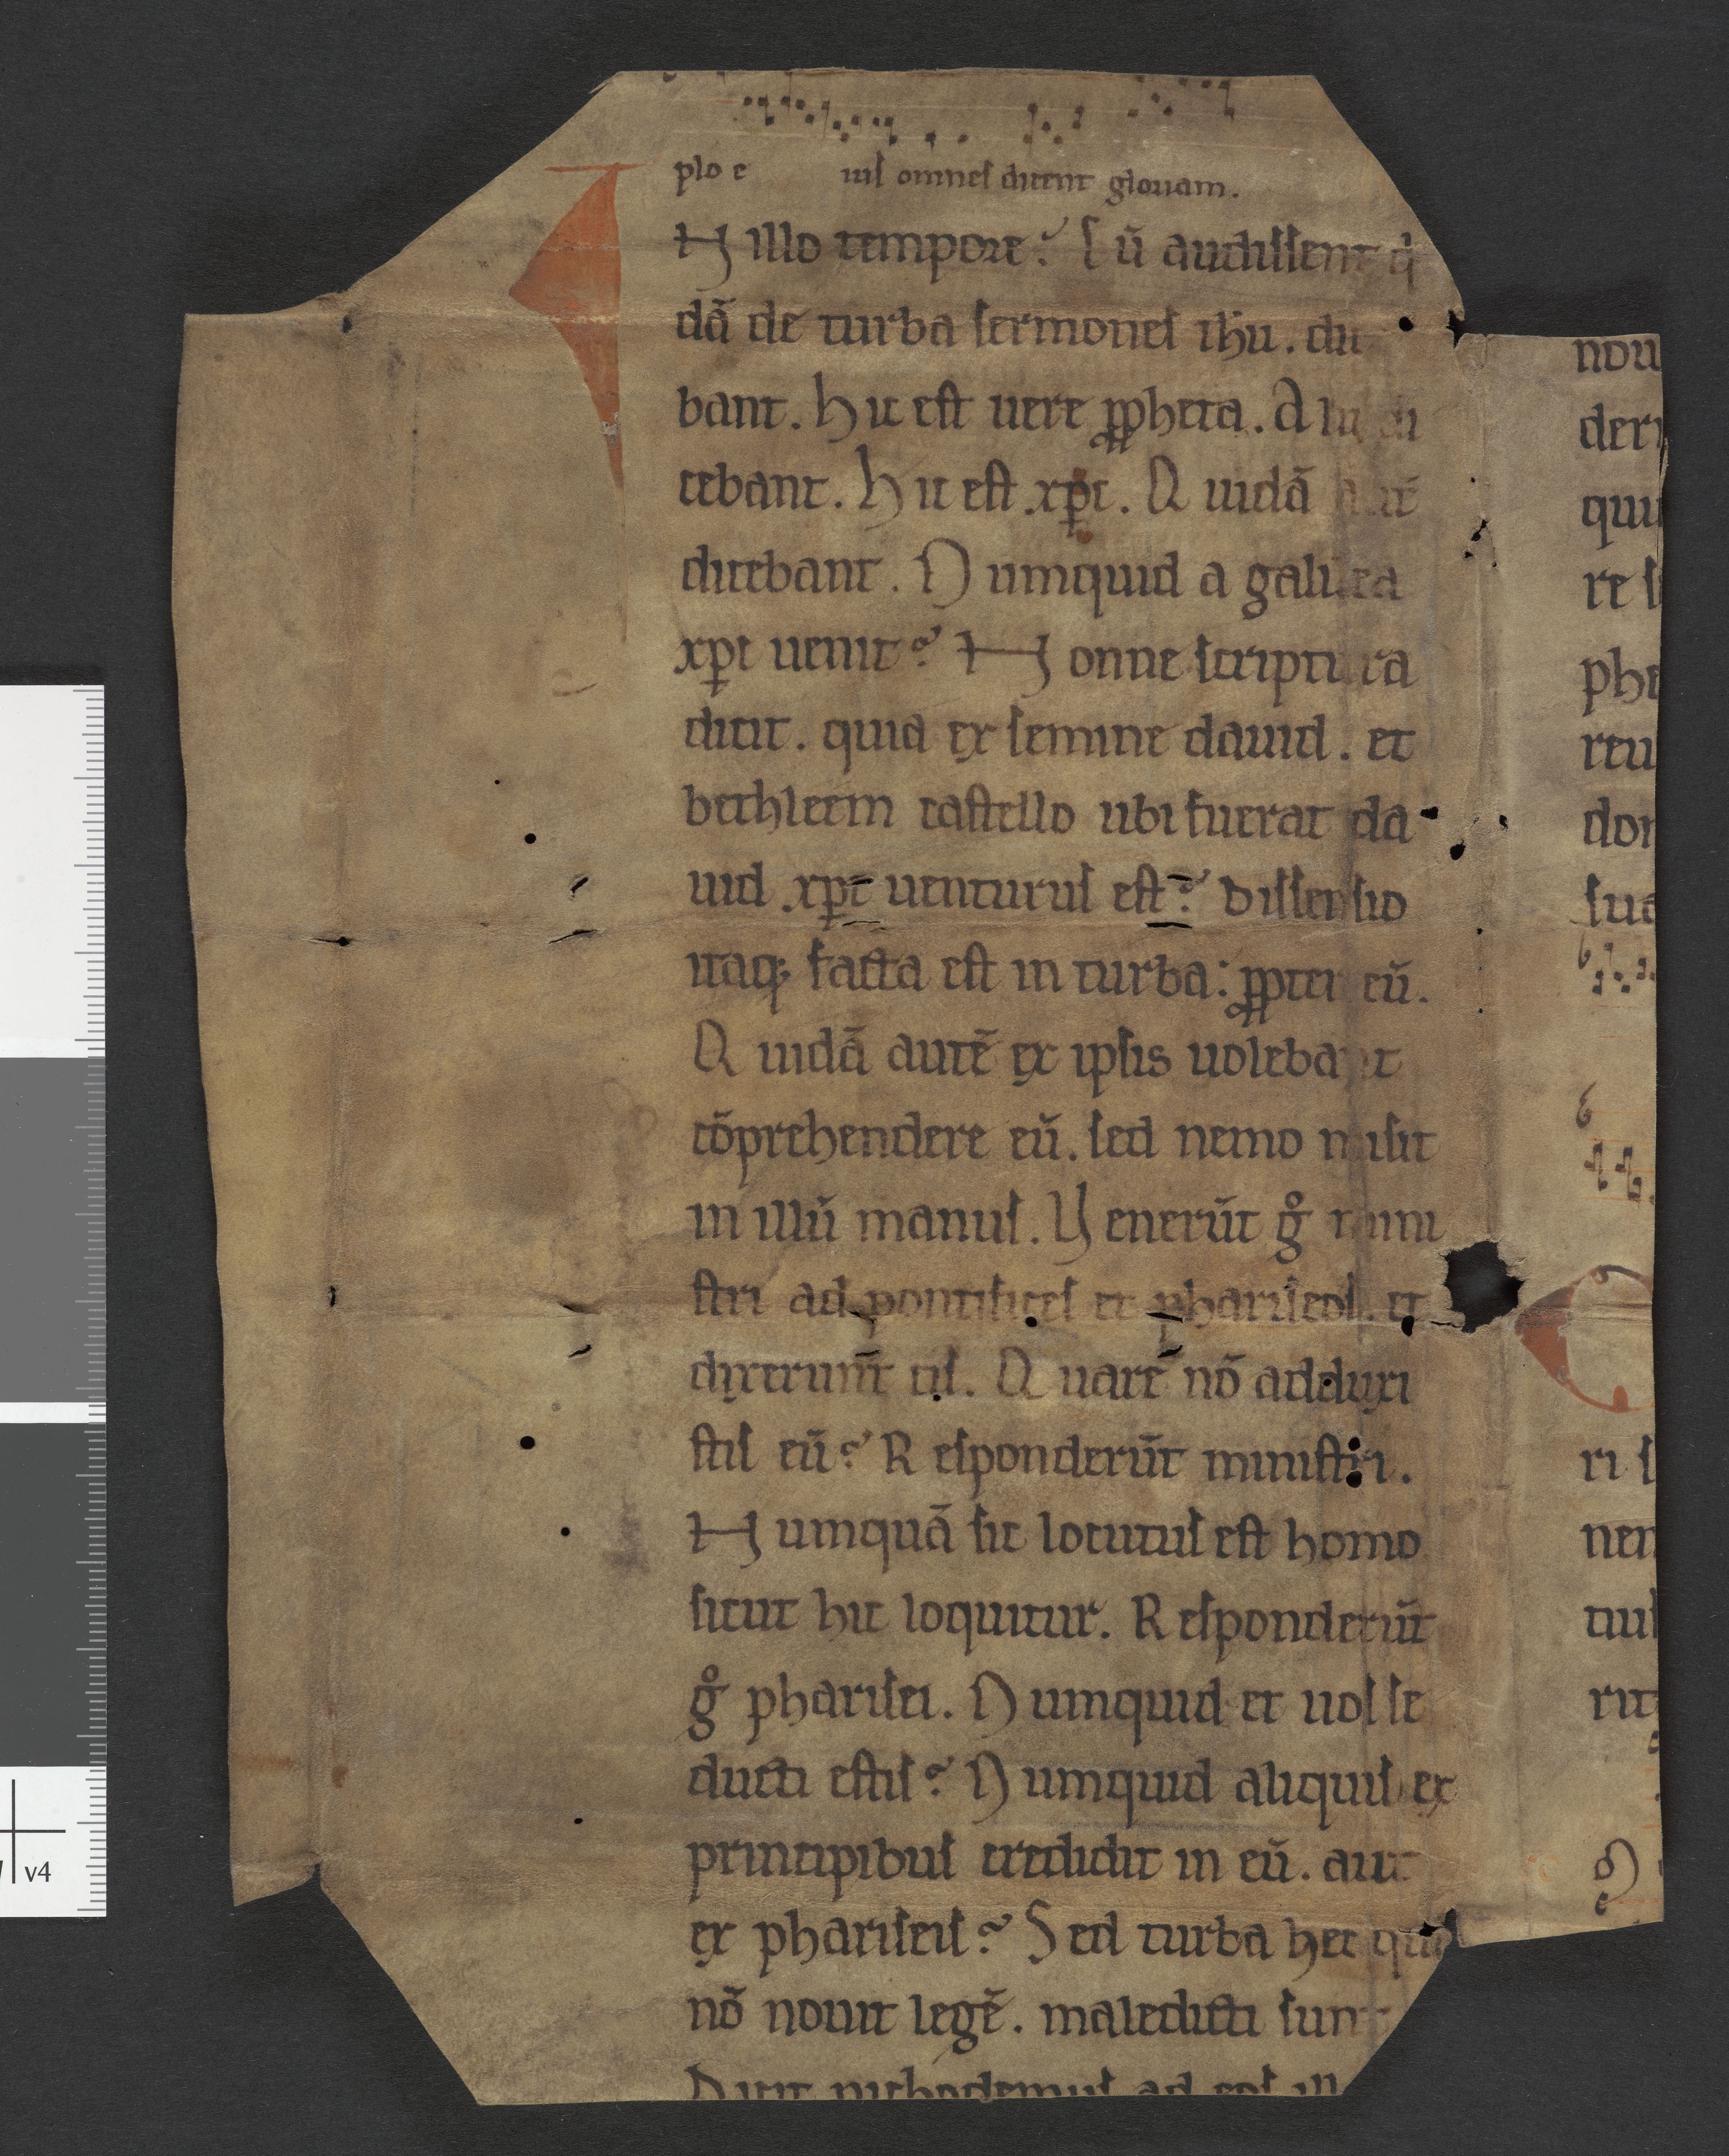 plo e iuſ omneſ dicent gloriam.
N illo tempore: Cū audiſſent q
dā de turba ſermoneſ ihu. dic
bant. Hic eſt uere ꝓpheta. Alii di
cebant. Hic eſt xpc. Quidā aut
dicebant. Numquid a galilea
xpc uenit? Nonne ſcriptura
dicit. quia ex ſemine dauid. et
bethleem caſtello ubi fuerat da
uid xpc uenturuſ eſt? Diſſenſio
itaq; facta eſt in turba: ꝓpter eū.
Quidā autē ex ipſis uolebant
cōprehendere eū. ſed nemo miſit
in illū manuſ. Venerūt gͦ mini
ſtri ad pontificeſ et phariſeoſ. et
dixerunt eiſ. Quare nō adduxi
ſtiſ eū? Reſponderūt miniſtri.
Numquā ſic locutuſ eſt homo
ſicut hic loquitur. Reſponderūt
gͦ phariſei. Numquid et uoſ ſe
ducti eſtiſ? Numquid aliquiſ ex
principibuſ credidit in eū. aut
ex phariſeiſ? Sed turba hec que
nō nouit legē. maledicti ſunt
Dicit nichodemuſ ad eoſ ill
nou
deri
qui
re ſ
phe
reu
dor
ſua
ri ſ
nem
tul
rit